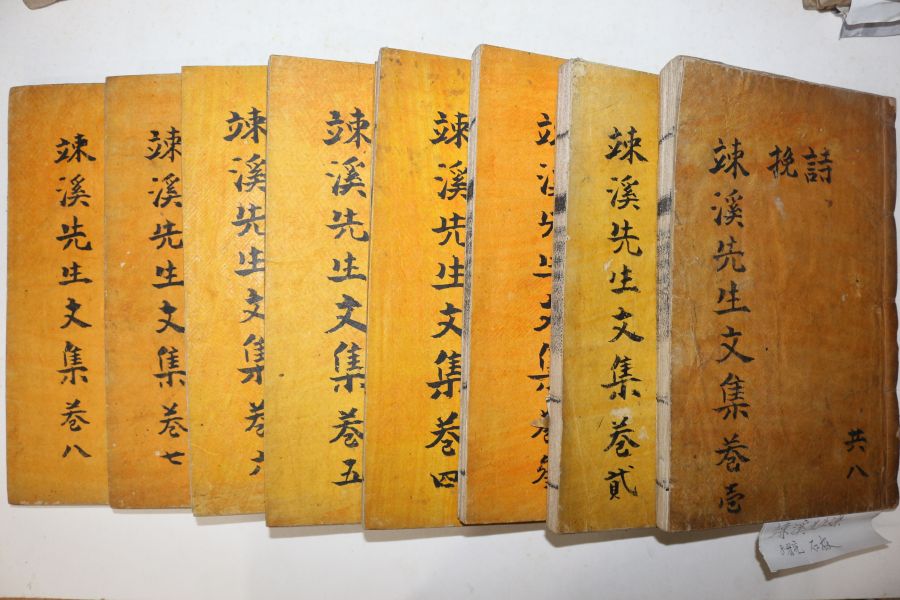 詩
挽
竦溪先生文集卷壱
共八
竦溪先生文集卷貳
竦溪先生文集卷參
竦溪先生文集卷四
竦溪先生文集卷五
竦溪先生文集卷六
竦溪先生文集卷七
竦溪先生文集卷八